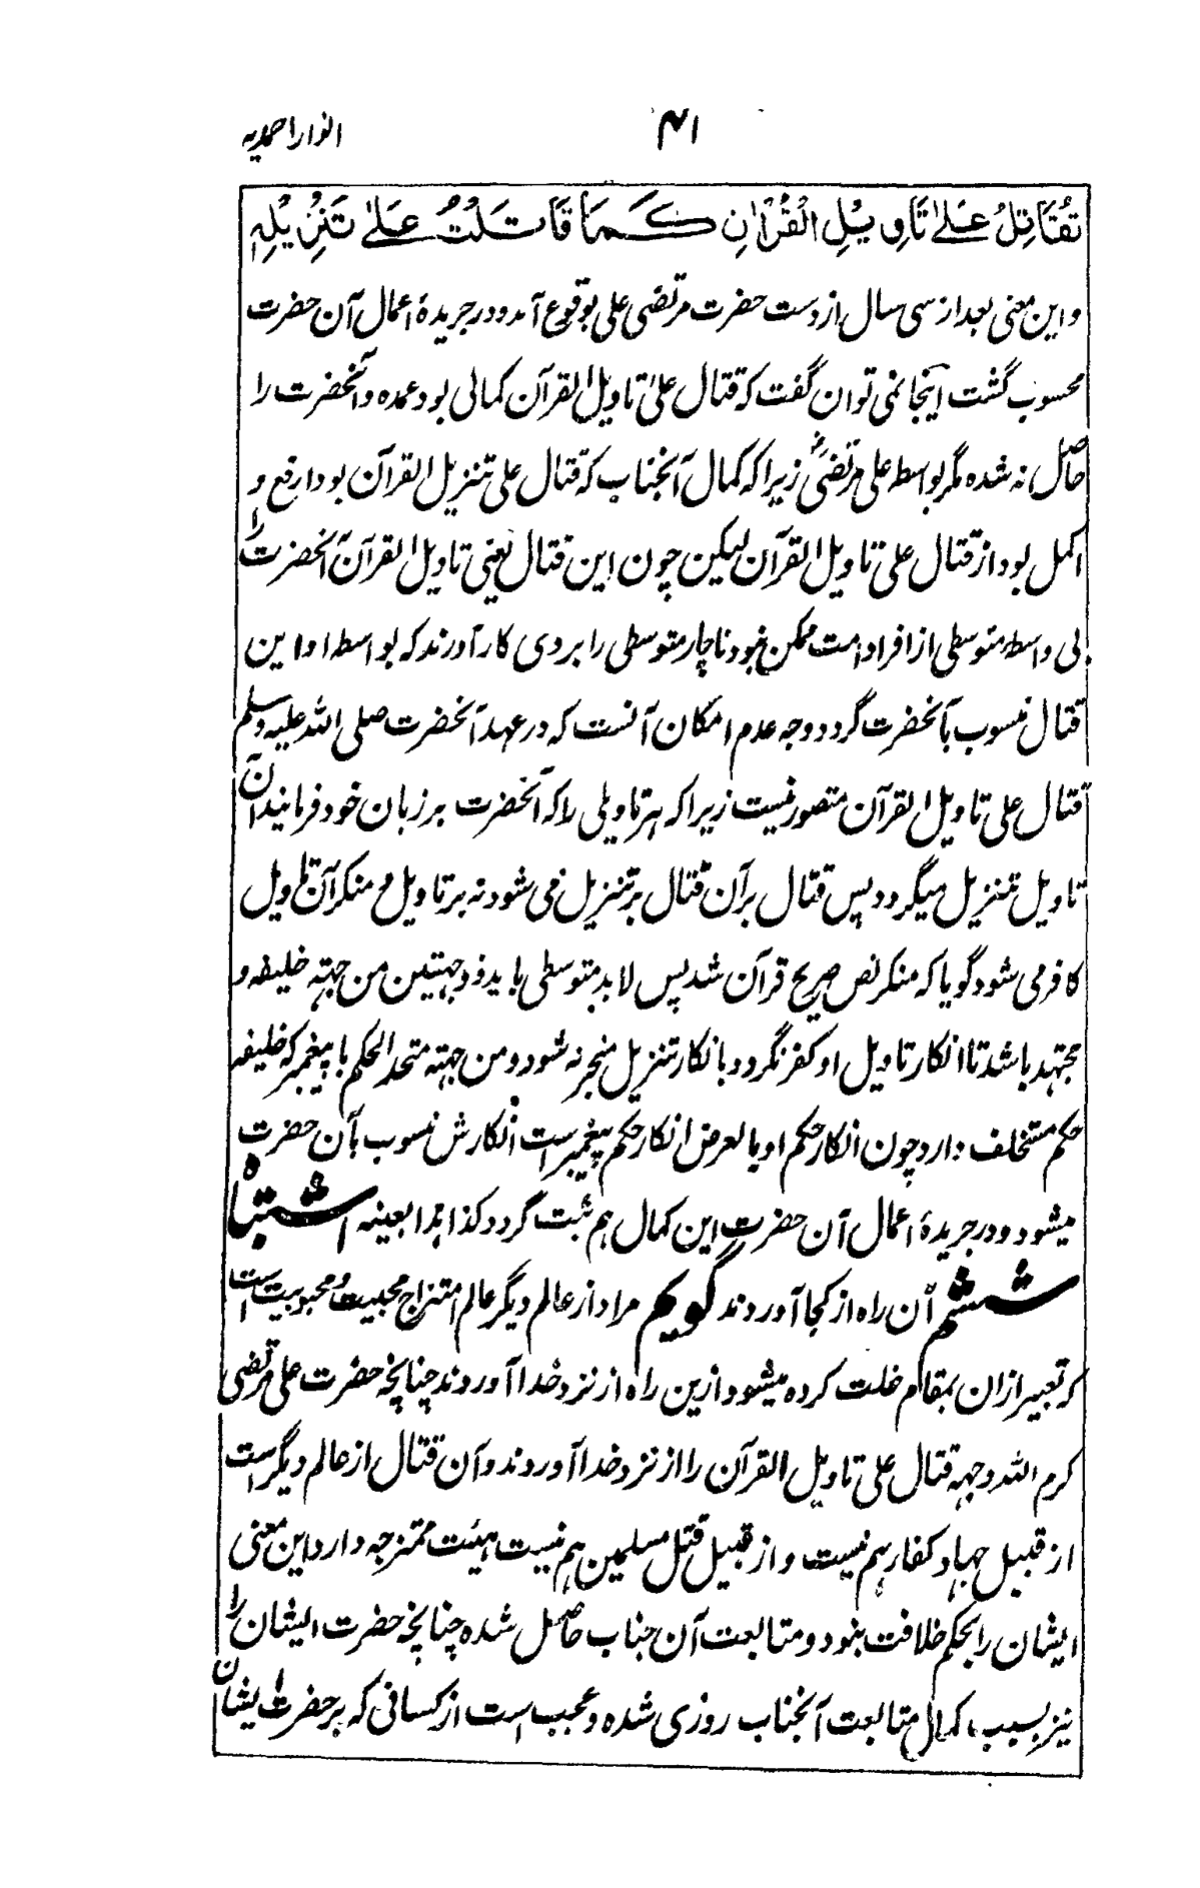 انوار احمدیه
۴۱
تُقَاتِلُ عَلٰی تَاوِیْلِ الْقُرْاٰنِ کَمَا قَاتَلْتُ عَلٰی تَنْزِیْلِهٖ
و این معنی بعد از سی سال از دست حضرت مرتضی علی بوقوع آمد و در جریدۀ اعمال آن حضرت
محسوب گشت اینجا نمی توان گفت که قتال علیٰ تاویل القرآن کمالی بود عمده و آنحضرت را
حاصل نه شده مگر بواسطه علی مرتضیٰ زیرا که کمال آنجناب که قتال علی تنزیل القرآن بود ارفع و
اکمل بود از قتال علی تاویل القرآن لیکن چون این قتال یعنی تاویل القرآن آنحضرت را
بی واسطه متوسطی از افراد امت ممکن نبود ناچار متوسطی را بروی کار آوردند که بواسطه او این
قتال منسوب بآنحضرت گردد و وجه عدم امکان آنست که در عهد آنحضرت صلی الله علیه وسلم
قتال علی تاویل القرآن متصور نیست زیرا که هر تاویلی را که آنحضرت بر زبان خود فرمایند آن
تاویل تنزیل میگردد پس قتال بر آن قتال بر تنزیل می شود نه بر تاویل و منکر آن تاویل
کافر می شود گویا که منکر نص صریح قرآن شد پس لابد متوسطی باید ذو جهتین من جهته خلیفه و
مجتهد باشد تا انکار تاویل او کفر نگردد و بانکار تنزیل منجر نه شود و من جهته متحد الحکم با پیغمبر که خلیفه
حکم مستخلف دارد چون انکار حکم او بالعرض انکار حکم پیغمبر است انکارش منسوب بآن حضرت
میشود و در جریدۀ اعمال آن حضرت این کمال هم ثبت گردد کذا هذا بعینه اشتباه
ششم آن راه از کجا آوردند گویم مراد از عالم دیگر عالم امتزاج محبیت و محبوبیت است
که تعبیر ازان بمقام خلت کرده میشود ازین راه از نزد خدا آوردند چنانچه حضرت علی مرتضی
کرم الله وجهه قتال علی تاویل القرآن را از نزد خدا آوردند و آن قتال از عالم دیگر است
از قبیل جهاد کفار هم نیست و از قبیل قتل مسلمین هم نیست هیئت ممتزجه دارد این معنی
ایشان را بحکم خلافت بنود و متابعت آن جناب حاصل شده چنانچه حضرت ایشان را
نیز بسبب کمال متابعت آنجناب روزی شده و عجب است از کسانی که بر حضرت ایشان